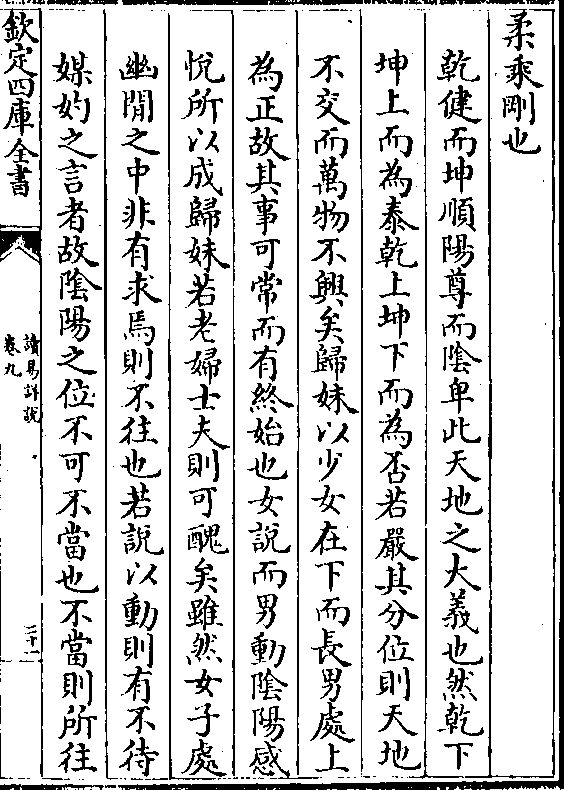 柔乘剛也
乾健而坤順陽尊而陰卑此天地之大義也然乾下
坤上而為泰乾上坤下而為否若嚴其分位則天地
不交而萬物不興矣歸妹以少女在下而長男處上
為正故其事可常而有終始也女說而男動陰陽感
悅所以成歸妹若老婦士夫則可醜矣雖然女子處
幽閒之中非有求焉則不往也若說以動則有不待
媒妁之言者故陰陽之位不可不當也不當則所往
欽定四庫全書
讀易詳說
卷九
三十一